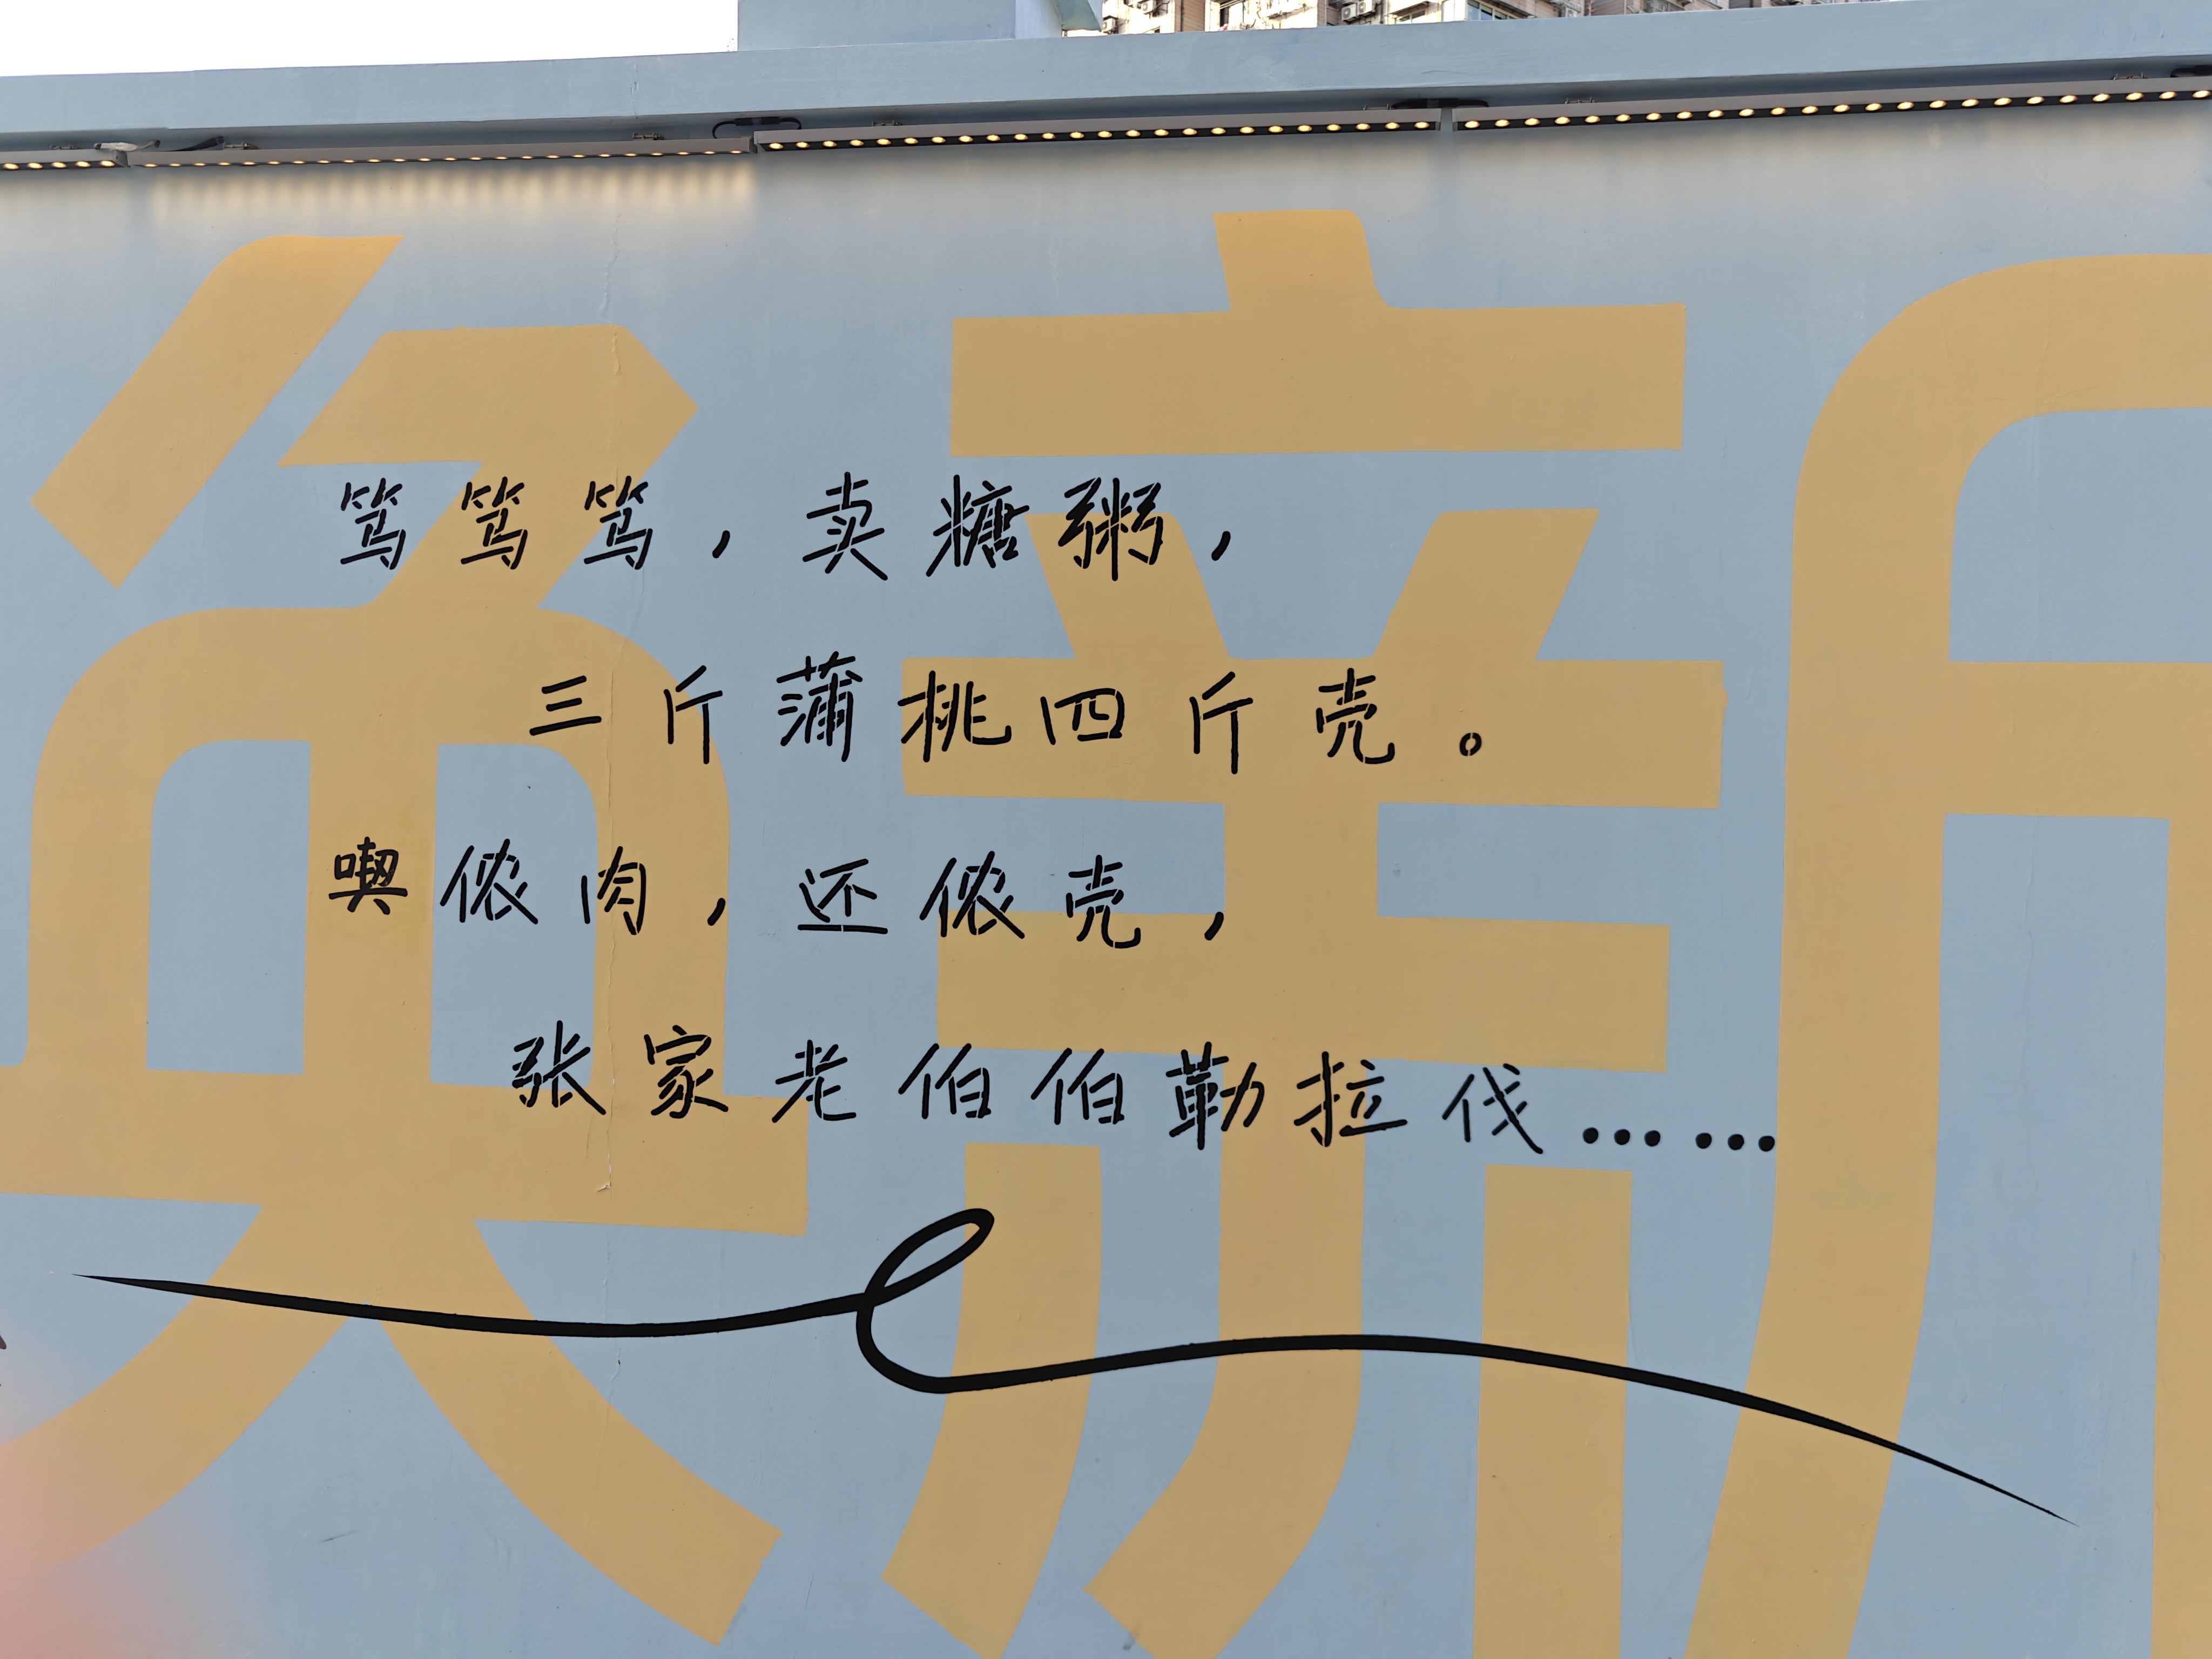 笃笃笃，卖糖粥，
三斤蒲桃四斤壳。
喫侬肉，还侬壳，
张家老伯伯勒拉伐……
奂新